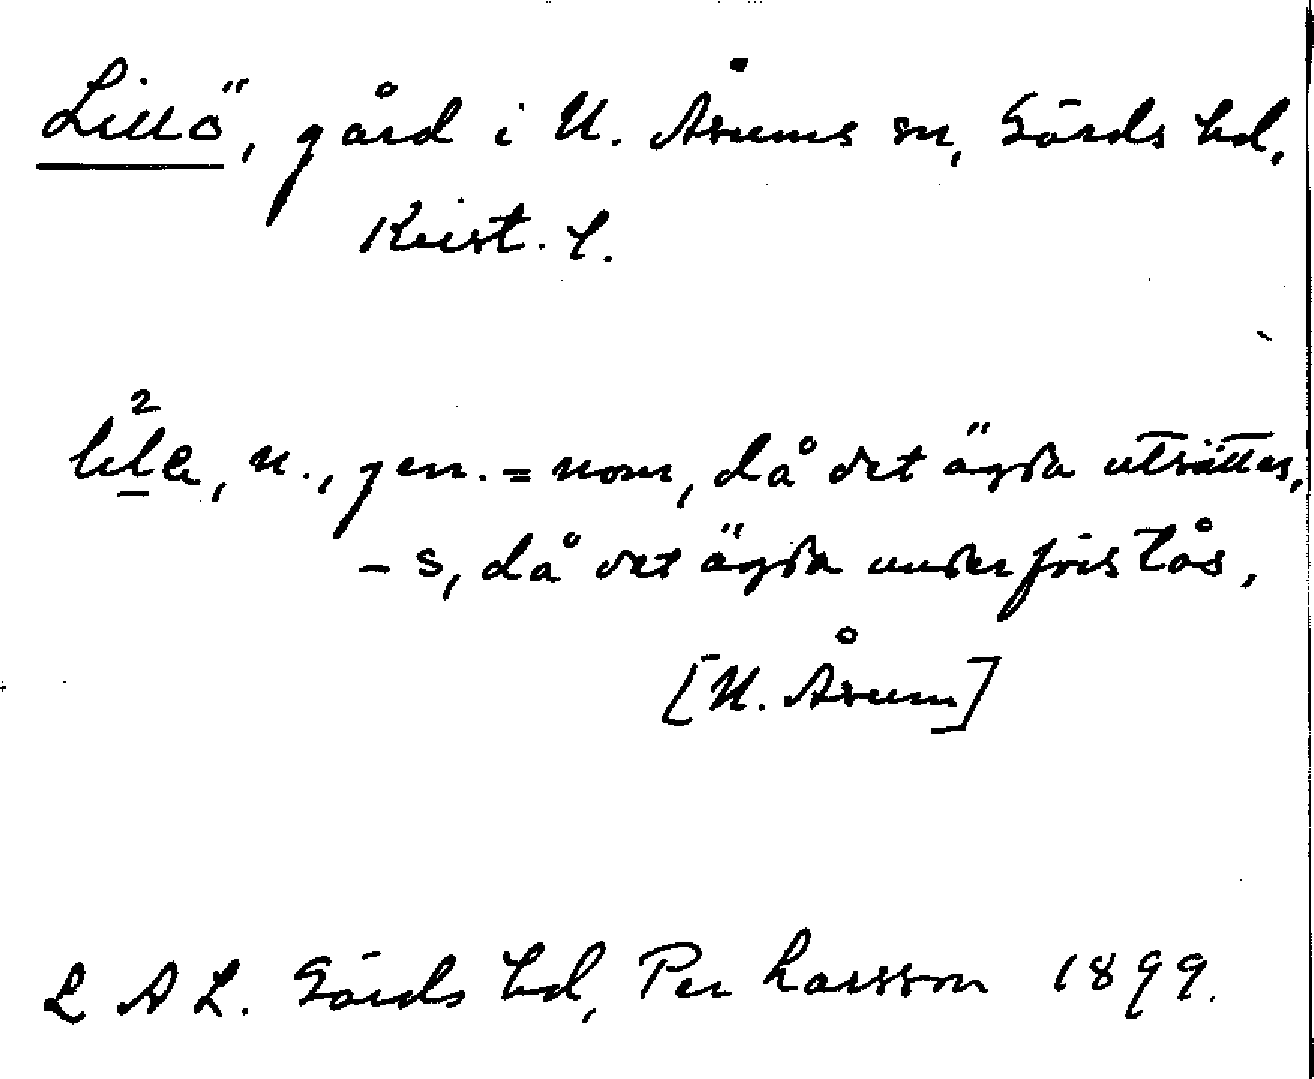 Lillö, gård i N. Åsums sn, Gärds hd,
Krist. l.
lila, n., gen. = nom, då det ägda utsättes,
- s, då det ägda underförstås,
[N. Åsum]
L A L. Gärds hd, Per Larsson 1899.